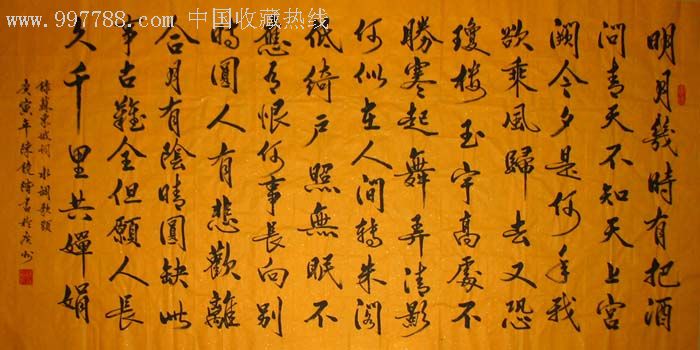 www.997788.com 中国收藏热线
明月幾時有把酒
問青天不知天上宮
闕今夕是何年我
欲乘風歸去又恐
瓊樓玉宇高處不
勝寒起舞弄清影
何似在人間轉朱閣
低綺戶照無眠不
應有恨何事長向別
時圓人有悲歡離
合月有陰晴圓缺此
事古難全但願人長
久千里共嬋娟
錄蘇東坡詞水調歌頭
庚寅年陳書於廣州